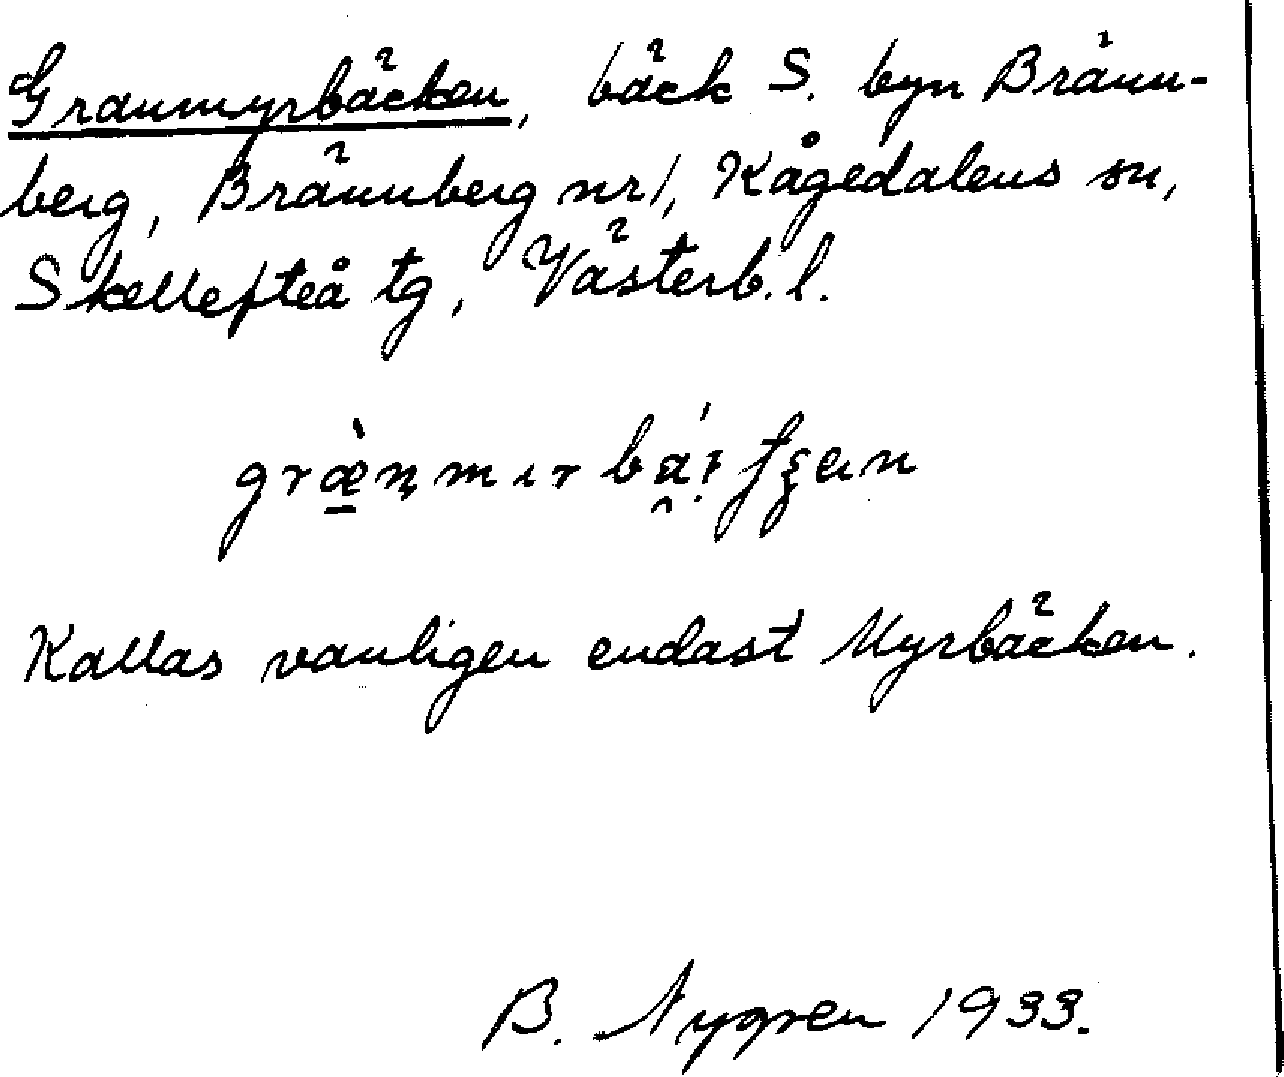 Granmyrbäcken, bäck S. byn Bränn-
berg, Brännberg nr 1, Kågedalens sn,
Skellefteå tg, Västerb. l.
Kallas vanligen endast Myrbäcken.
B. Nygren 1933.